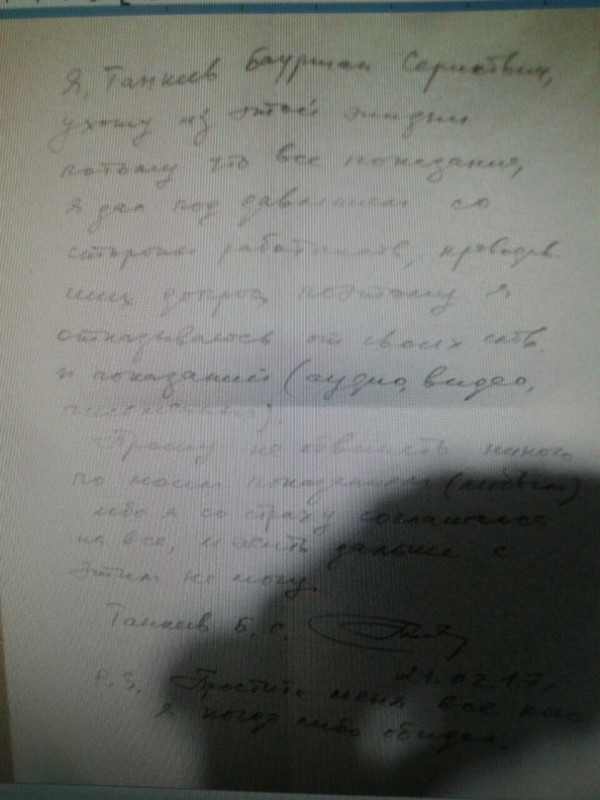 Я, Танкеев Бауржан Сериевич,
ухожу из этой жизни
потому что все показания,
я дал под давлением со
стороны работников, проводив
ших допрос, поэтому я
отказываюсь от своих слов
и показаний (аудио, видео,
письменных).
Прошу не обвинять никого
по моим показаниям (любым)
либо я со страху соглашался
на все, и жить дальше с
этим не могу.
Танкеев Б. С.
21.02.17г.
P. S. Простите меня все кого
я когда либо обидел.